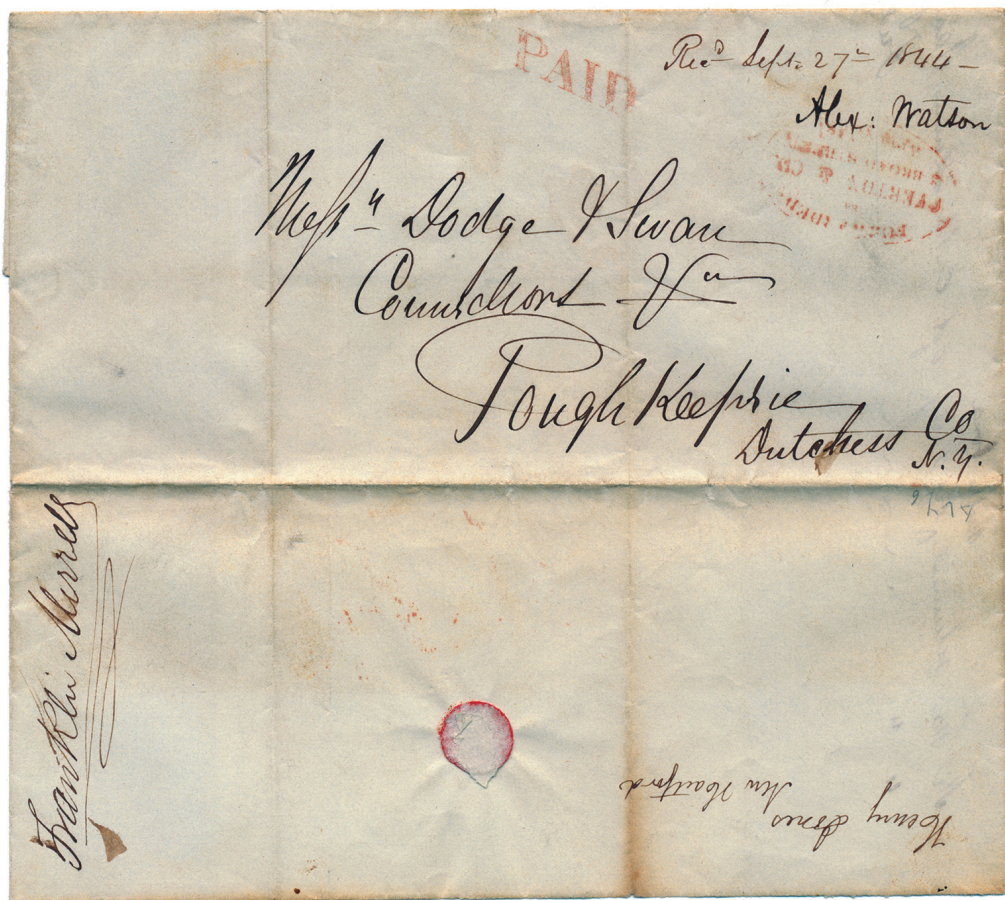 PAID
Recd Sept. 27th 1844 –
Alex: Watson
Messrs Dodge & Swan
Counsellors &c
PoughKeepsie
Dutchess Co
N.Y.
Franklin Merrell
Henry Jones
New Hartford